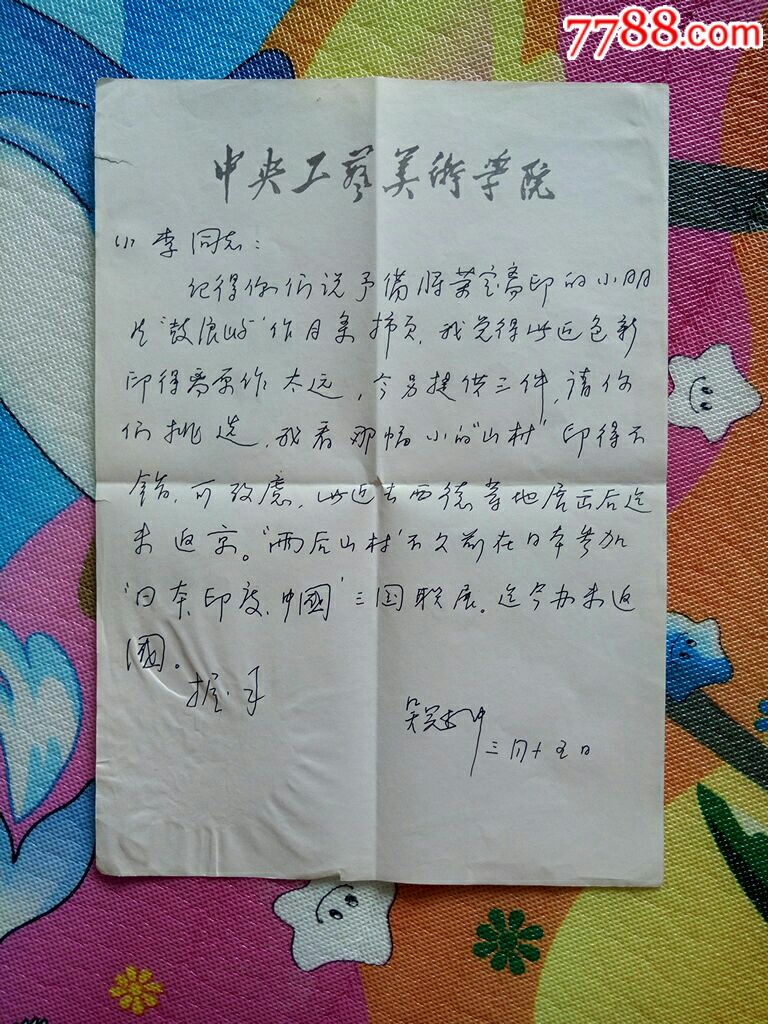 7788.com
中央工藝美術學院
小李同志：
记得你们说予備将荣宝斋印的小明
片"鼓浪屿"作 插页，我觉得此 色彩
印得离原作太远，今另提供三件，请你
们挑选，我看那幅小的"山村"印得不
错，可攷慮，此 去西德等地展出后迄
未返京。"雨后山村"不久前在日本参加
"日本、印度、中國"三国联展。迄今亦未返
國。
握手
吴冠中
三月十五日